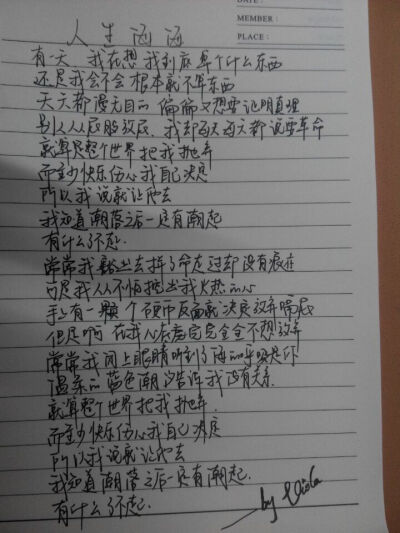 DATE:
MEMBER:
PLACE:
人生海海
有一天 我在想我到底算个什么东西
还是我会不会根本就不算东西
天天都漫无目的 偏偏又想要证明真理
别人从屁股放屁 我却天天每天都说要革命
就算是整个世界把我抛弃
而至少快乐伤心我自己决定
所以我说就让他去
我知道潮落之后一定有潮起
有什么了不起.
常常我豁出去拼了命走过却没有痕迹
可是我从不怕挖出我火热的心
手上有一颗 个硬币反面就决定放弃嘴屁
但是啊 在我心底完完全全不想放弃
常常我闭上眼睛听到了海的呼吸是你
温柔的蓝色潮汐告诉我没有关系
就算整个世界把我抛弃.
而至少快乐伤心我自己决定
所以我说就让他去
我知道潮落之后一定有潮起.
有什么了不起.
by Viola